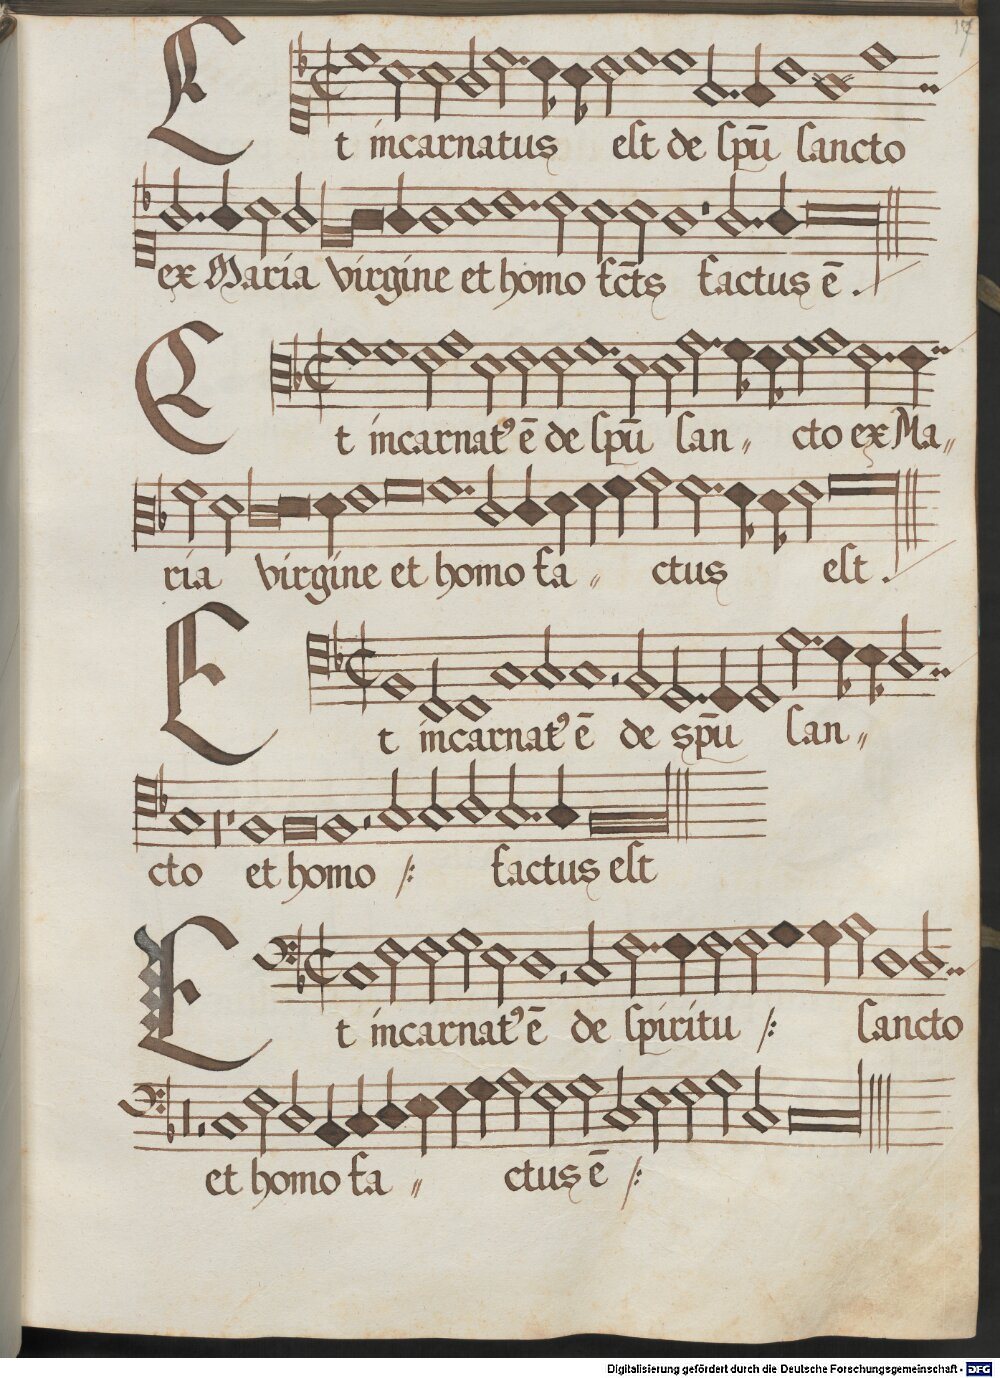 17
Et incarnatus est de spū sancto
ex Maria virgine et homo fcts factus ē .
Et incarnatꝰ ē de spū san〃 cto ex Ma〃
ria virgine et homo fa〃 ctus est .
Et incarnatꝰ ē de spū san〃
cto et homo :/: factus est
Et incarnatꝰ ē de spiritu :/: sancto
et homo fa〃 ctus ē :/:
Digitalisierung gefördert durch die Deutsche Forschungsgemeinschaft - DFG